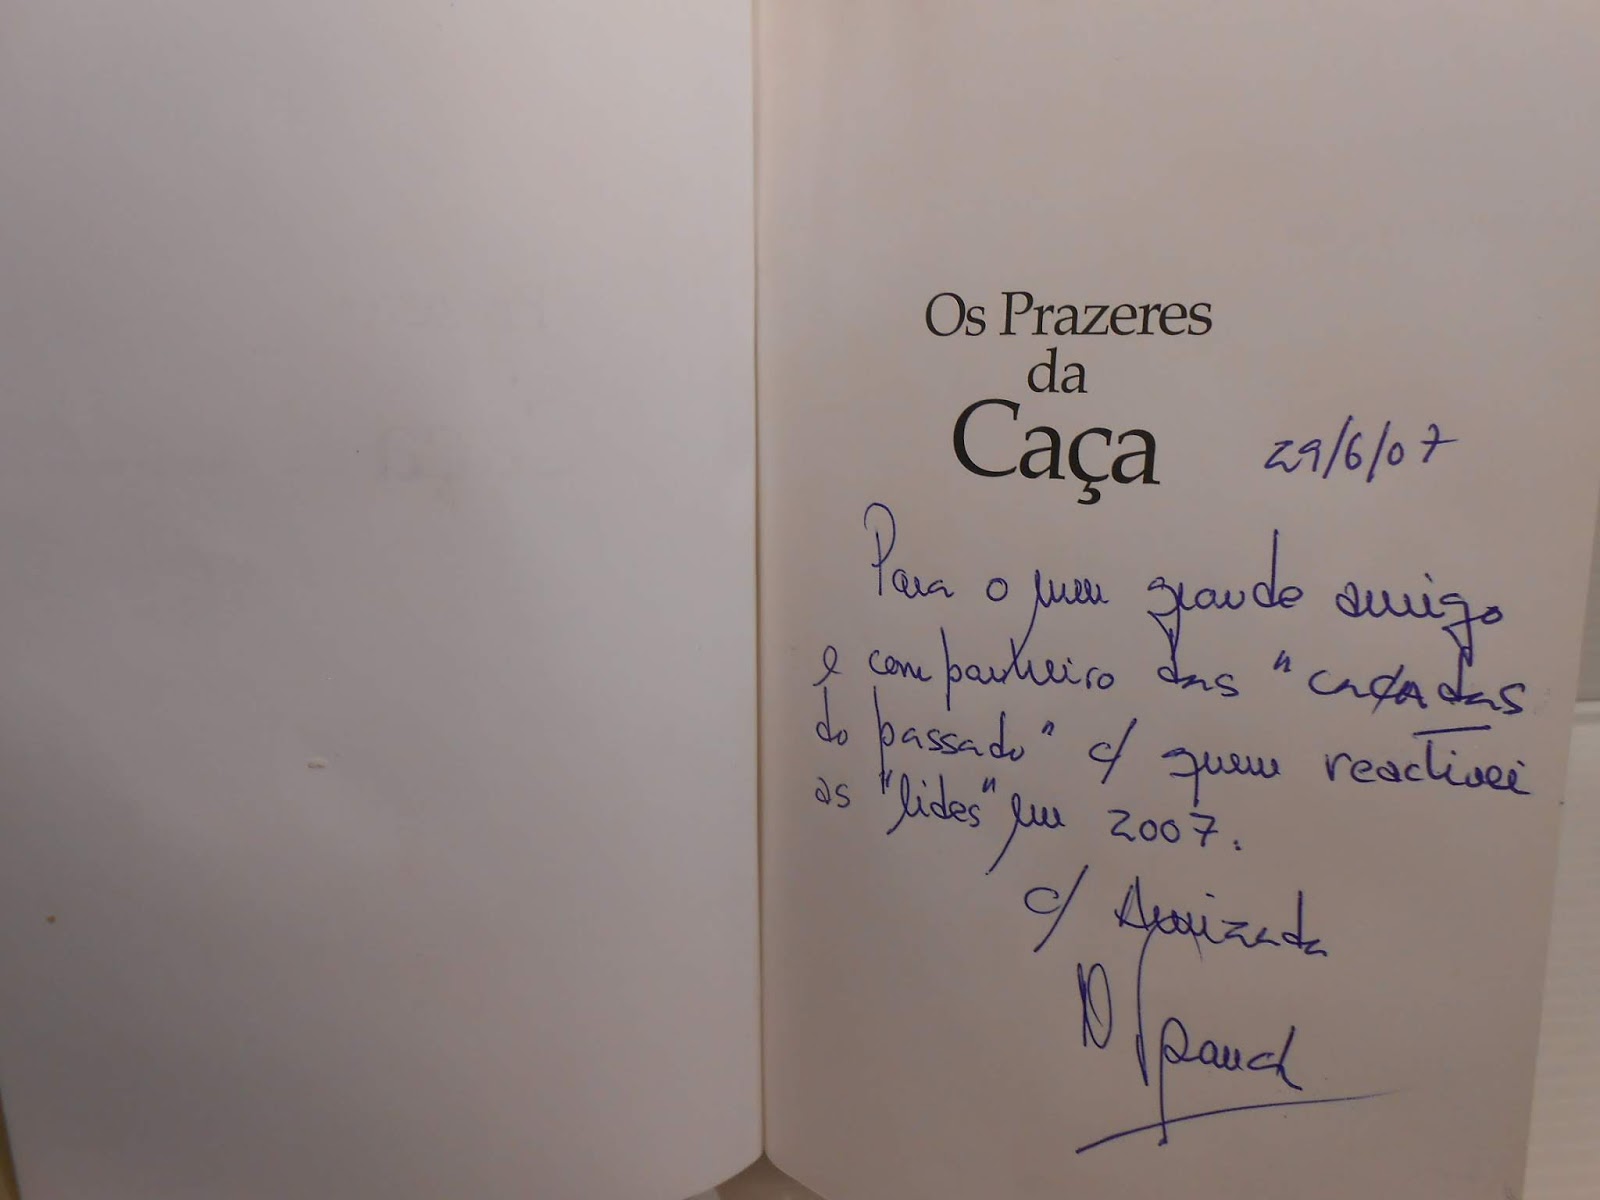 Os Prazeres
da
Caça
29/6/07
Para o meu grande amigo
e companheiro das "caçadas
do passado" c/ quem reactivei
as "lides" em 2007.
c/ Amizade